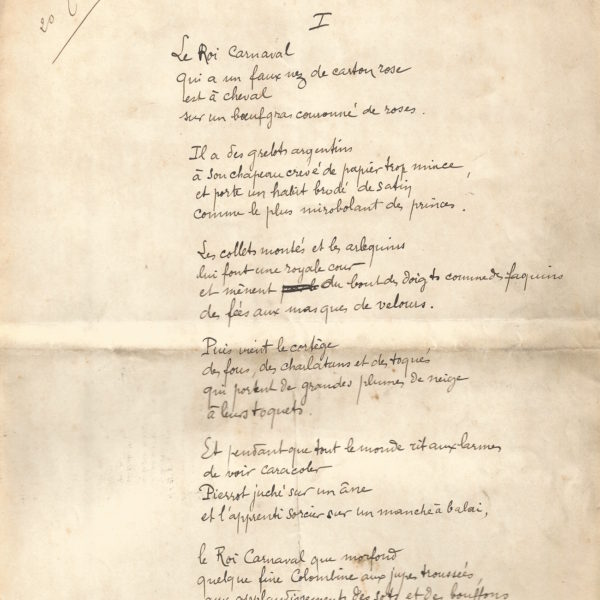 20
I
Le Roi Carnaval
qui a un faux nez de carton rose
est à cheval
sur un bœuf gras couronné de roses.
Il a des grelots argentins
à son chapeau crevé de papier trop mince,
et porte un habit brodé de satin
comme le plus mirobolant des princes.
Les collets montés et les arlequins
lui font une royale cour
et mènent du bout des doigts comme des faquins
des fées aux masques de velours.
Puis vient le cortège
des fous, des charlatans et des toqués
qui portent de grandes plumes de neige
à leurs toquets.
Et pendant que tout le monde rit aux larmes
de voir caracoler
Pierrot juché sur un âne
et l'apprenti sorcier sur un manche à balai,
le Roi Carnaval que morfond
quelque fine Colombine aux jupes troussées,
aux applaudissements des sots et des bouffons